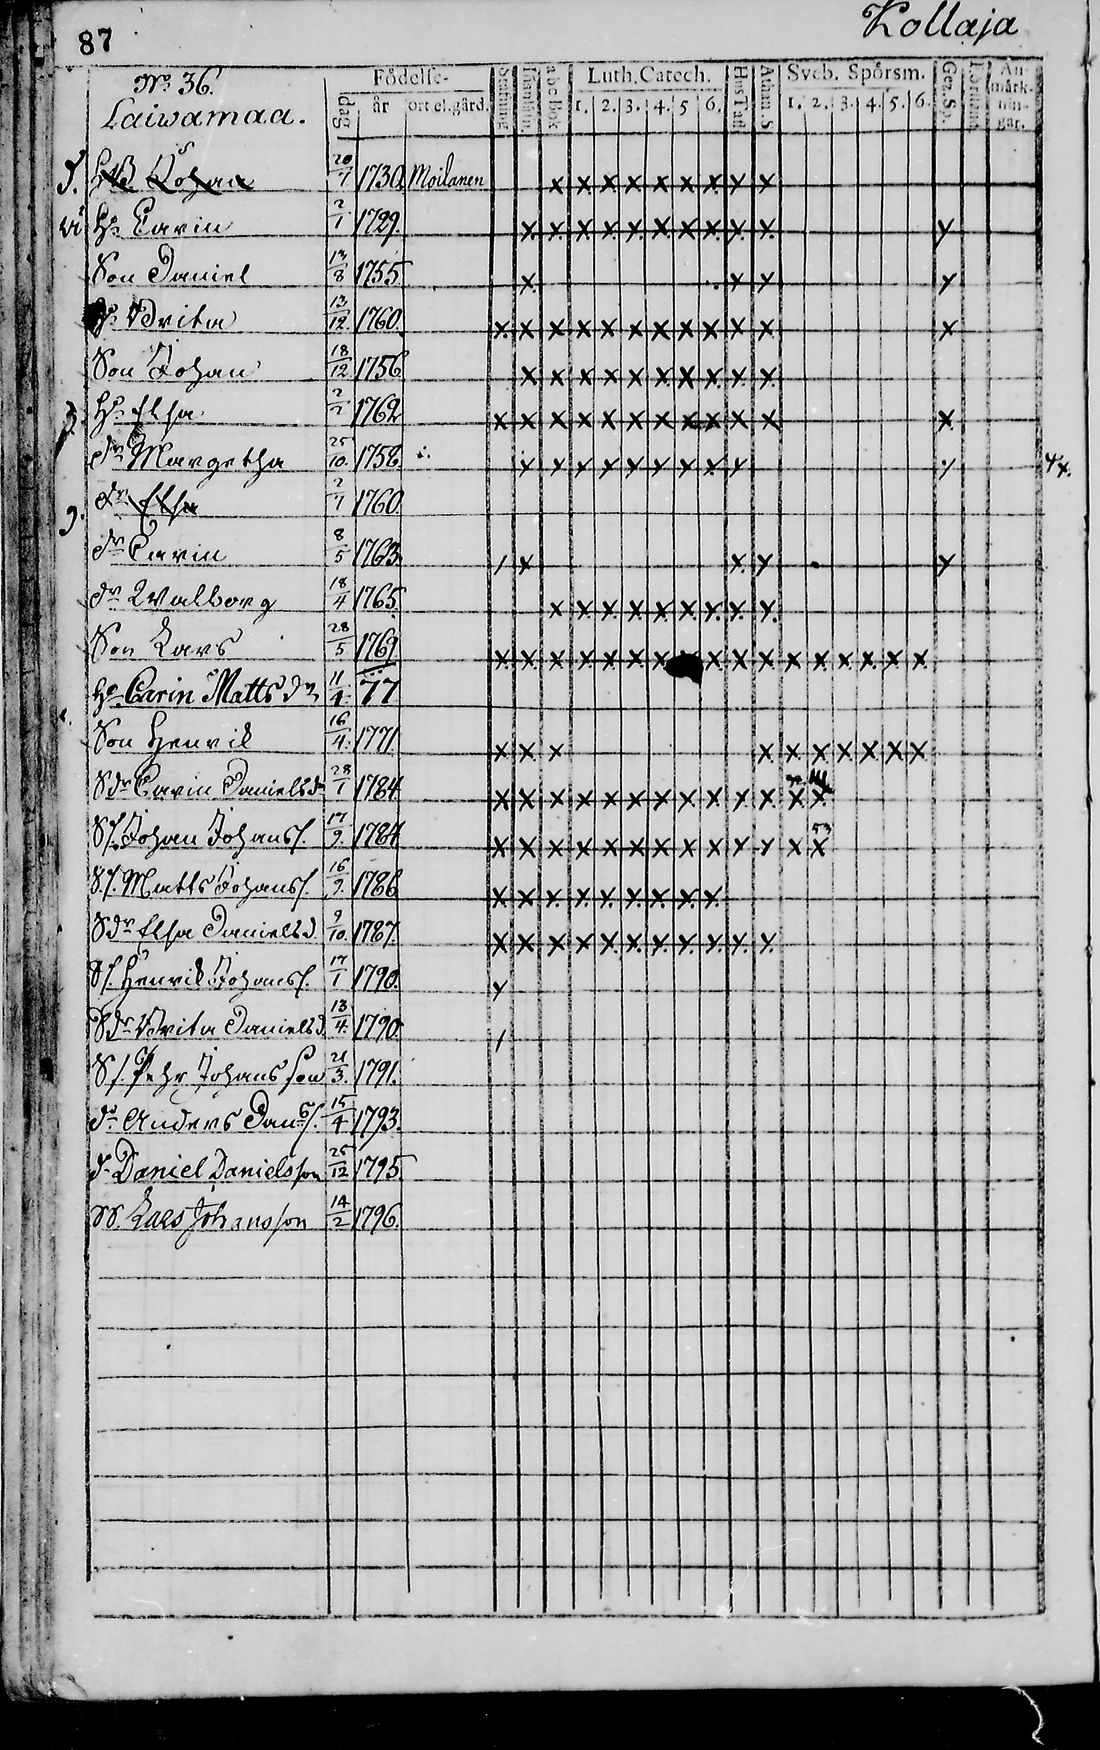 87
Kollaja
No 36.
Laiwamaa.
Födelse-
dag
år
ort el. gård.
abc Bok
Luth. Catech.
1. 2. 3. 4. 5 6.
Hus Tafl
Athan. S
Sveb. Spörsm.
1. 2. 3. 4. 5. 6.
An-
märk-
nin-
gar.
Johan 20/7 1730 Moilanen x x x x x x x x x
Hu Carin 2/1 1729. x x x x x x x x x x y
Son Daniel 13/8 1755 x x y y
Hu Brita 13/12 1760 x x x x x x x x x x x x
Son Johan 18/12 1756 x x x x x x x x x x
Hu Elsa 2/7 1762 x x x x x x x x x x x x
dr Margetha 25/10. 1758 y y y y y y y x y
dr Elsa 2/7 1760
dr Carin 8/5 1763 / x x y y
dr Walborg 18/4 1765 x x x x x x y y y
Son Lars 28/5 1769 x x x x x x x x x x x x x x x x
Hu Carin Matts dr 11/4 77
Son Henrik 16/4 1771 x x x x x x x x x x
Sdr Carin Danielsdr 28/1 1784 x x x x x x x x x y x x x
S.s. Johan Johanss. 17/9. 1784 x x x x x x x x x y y x x
S.s. Matts Johanss. 16/9. 1786 x x x x x x x x x
Sdr Elsa Danielsd. 9/10. 1787. x x x x x x y y y y y
S.s. Henrik Johanss. 17/1 1790. y
Sdr Brita Danielsd. 13/4. 1790. /
S.s. Pehr Johans son 21/3. 1791.
dr Anders Dans s. 15/4 1793.
dr Daniel Danielsson 25/12 1795
SS. Lars Johansson 14/2 1796.